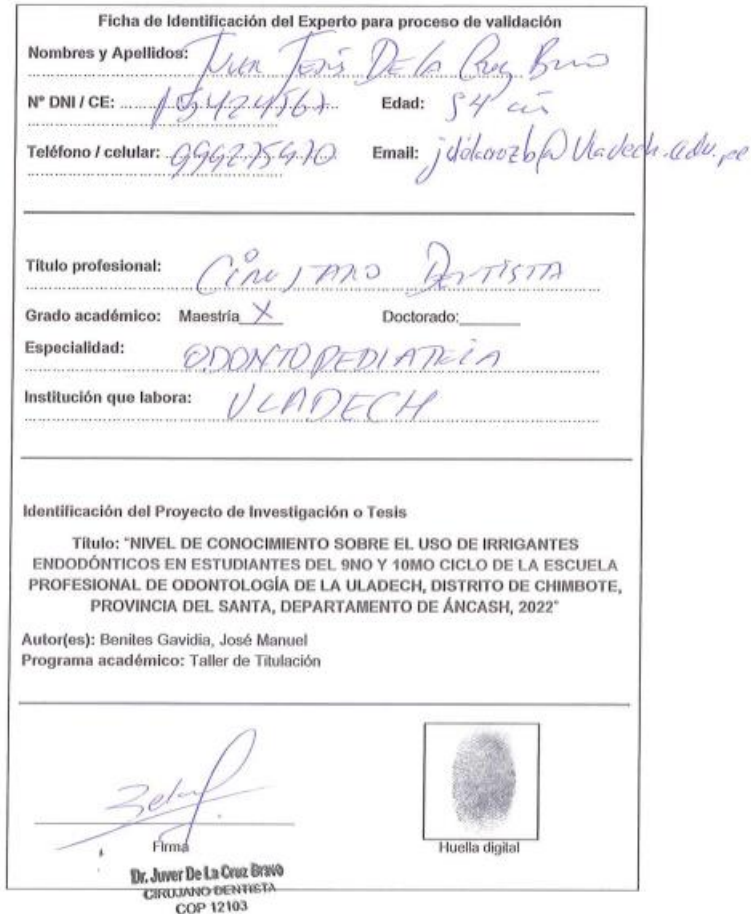 Ficha de Identificación del Experto para proceso de validación
Nombres y Apellidos: De la Cruz
N° DNI / CE: Edad: 54
Teléfono / celular: Email:
Título profesional: Cirujano Dentista
Grado académico: Maestría X Doctorado:
Especialidad: ODONTOPEDIATRIA
Institución que labora: ULADECH
Identificación del Proyecto de Investigación o Tesis
Título: "NIVEL DE CONOCIMIENTO SOBRE EL USO DE IRRIGANTES
ENDODÓNTICOS EN ESTUDIANTES DEL 9NO Y 10MO CICLO DE LA ESCUELA
PROFESIONAL DE ODONTOLOGÍA DE LA ULADECH, DISTRITO DE CHIMBOTE,
PROVINCIA DEL SANTA, DEPARTAMENTO DE ÁNCASH, 2022"
Autor(es): Benites Gavidia, José Manuel
Programa académico: Taller de Titulación
Firma Huella digital
Dr. Juver De La Cruz Bravo
CIRUJANO DENTISTA
COP 12103